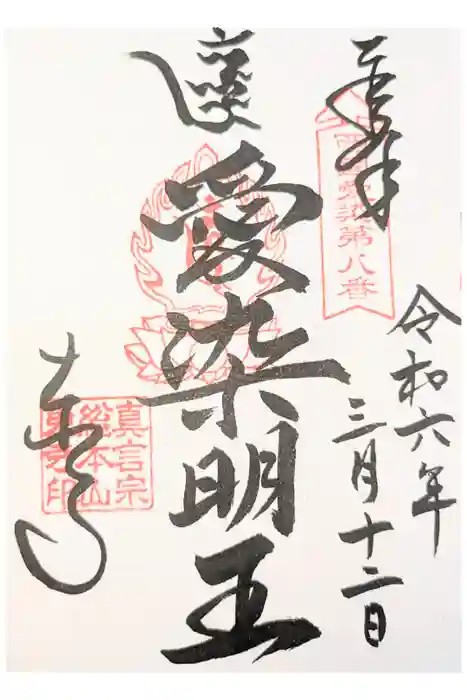 奉拝
西国愛染第八番
令和六年
三月十二日
愛染明王
真言宗
総本山
東寺印
東寺